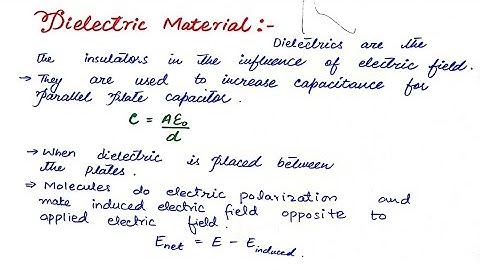 Dielectric Material:-
Dielectrics are the
the insulators in the influence of electric field.
→ They are used to increase capacitance for
Parallel Plate capacitor.
C = Aε₀/d
→ When dielectric is placed between
the plates.
⇒ Molecules do electric polarization and
make induced electric field opposite to
applied electric field.
Enet = E - Einduced.